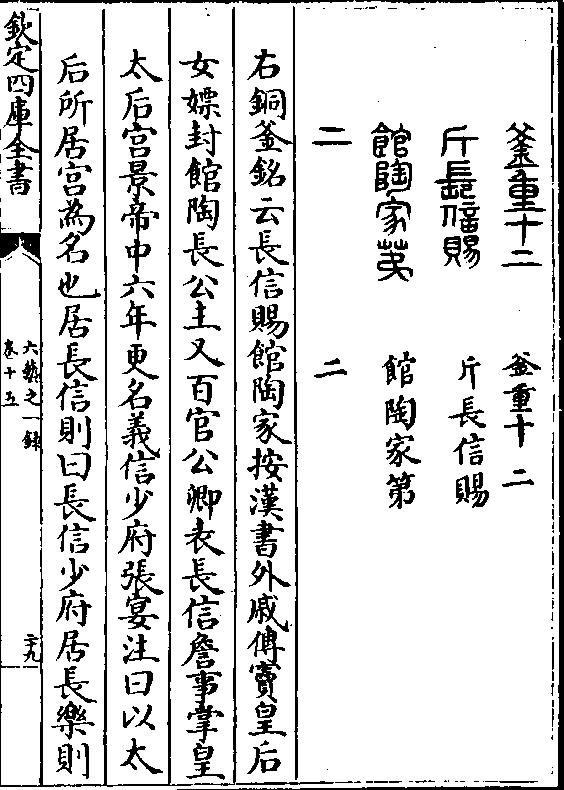 釜重十二 釜重十二
斤長信賜 斤長信賜
館陶家苐 館陶家第
二 二
右銅釜銘云長信賜館陶家按漢書外戚傅竇皇后
女嫖封館陶長公主又百官公卿表長信詹事掌皇
太后宫景帝中六年更名義信少府張宴注曰以太
后所居宫為名也居長信則曰長信少府居長樂則
欽定四庫全書 六藝之一錄 卷十五 二十九